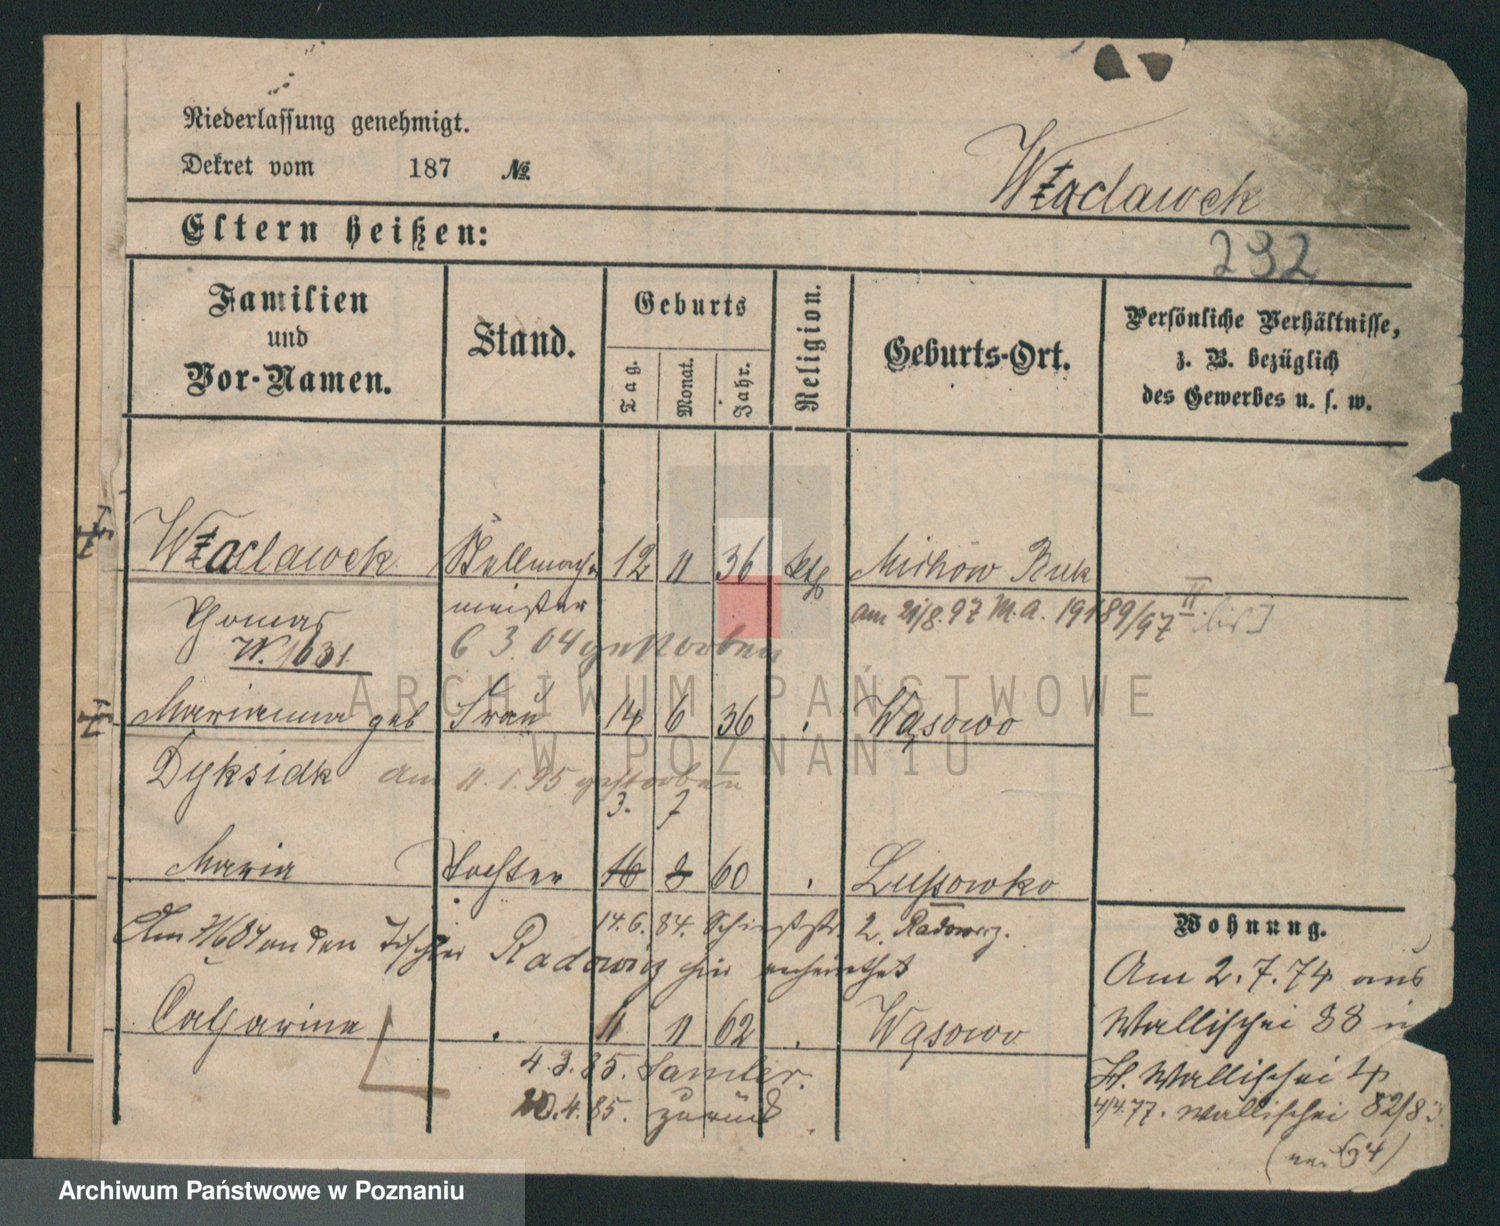 Niederlassung genehmigt.
Dekret vom 187 №
Wżaclawek
292
Eltern heißen:
Familien und Vor-Namen.
Stand.
Geburts
Tag.
Monat.
Jahr.
Religion.
Geburts-Ort.
Persönliche Verhältnisse,
z. B. bezüglich
des Gewerbes u. s. w.
Wżaclawek Stellmach- 12 11 36 kth Buk
Thomas meister am 21/8.97 M.A. 19189/97 II
W. 1631 6 3. 04 gestorben
Marianna geb Frau 14 6 36 Wąsowo
Dyksidk am 11.1.95 gestorben
3. 7
Maria Tochter 16 8 60 Lussowko
14.6.84. Schießstr 2. Radowicz.
Am an den Tischler Radowicz hier verheirathet
Catharina 11 11 62 Wąsowo
4.3.85. Samter.
20.4.85. zurück
Wohnung.
Am 2.7.74 aus
Wallischei 88 in
H. Wallischei 4
4/4.77. Wallischei 82/83
ARCHIWUM PAŃSTWOWE
W POZNANIU
Archiwum Państwowe w Poznaniu